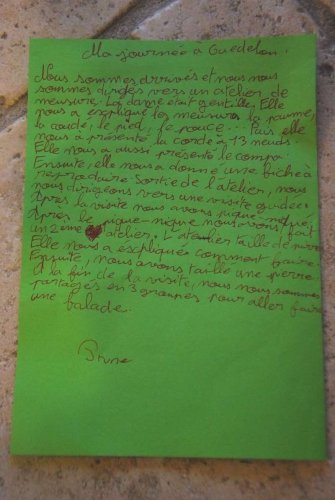 Ma journée à Guédelon.
Nous sommes arrivés et nous nous
sommes dirigés vers un atelier de
mesure. La dame était gentille. Elle
nous a expliqué les mesures la paume,
la coude, le pied, le pouce... Puis elle
nous a présenté la corde à 13 nœuds.
Elle nous a aussi présenté le compa.
Ensuite, elle nous a donné une fiche à
reproduire. Sortie de l'atelier, nous
nous dirigeons vers une visite guidée.
Après la visite nous avons pique-niqué.
Après le pique-nique nous avons fait
un 2ème atelier. L'atelier taille de pierre
Elle nous a expliqué comment faire.
Ensuite, nous avons taillé une pierre
à la fin de la visite, nous nous sommes
partagés en 3 groupes pour aller faire
une balade.
Prune